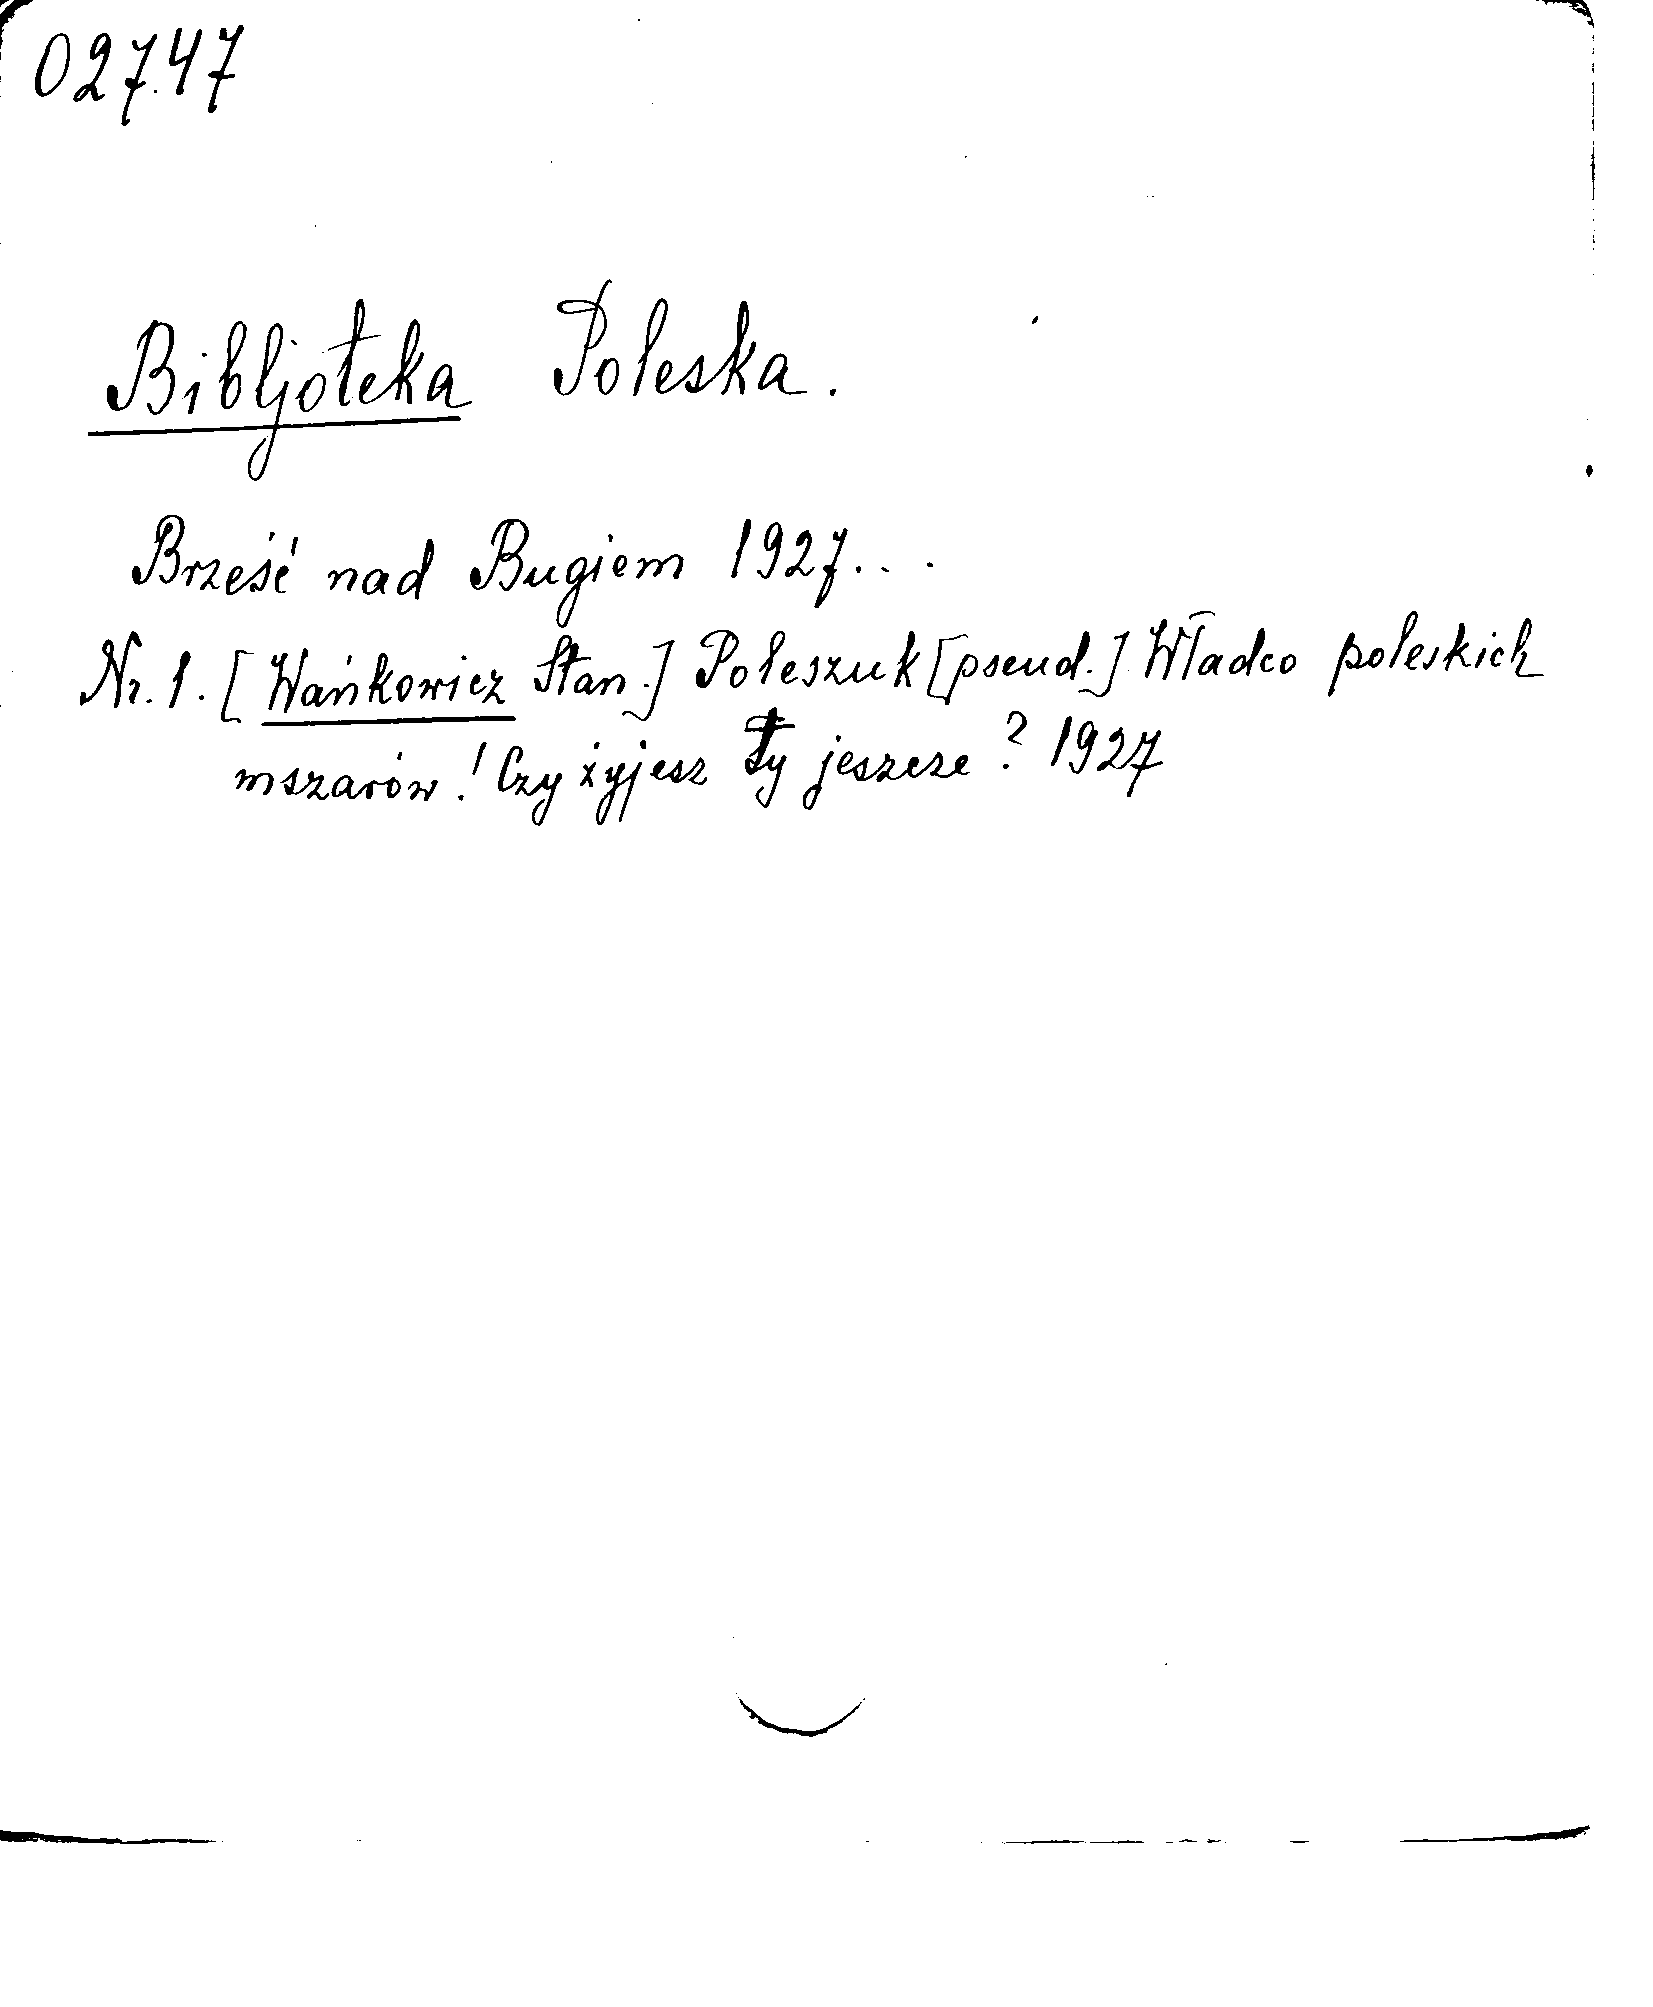 02747
Bibljoteka Poleska.
Brześć nad Bugiem 1927...
Nr. 1. [Wańkowicz Stan.] Poleszuk [pseud.] Władco poleskich
mszarów! Czy żyjesz Ty jeszcze? 1927